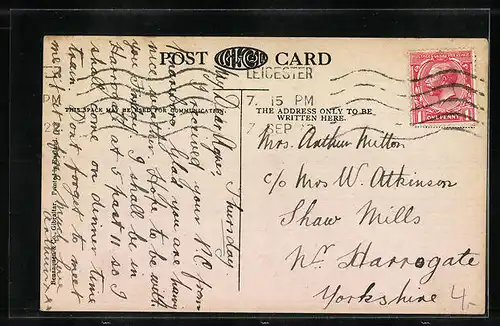 POST CARD
LEICESTER
7. 15 PM
7 SEP
ONE PENNY
THIS SPACE MAY BE USED FOR COMMUNICATION.
THE ADDRESS ONLY TO BE
WRITTEN HERE.
Thursday
My Dear Agnes
I received your P.C. from
Glad you are having
nice weather Hope to be with
you Sunday I shall be in
Harrogate at 5 past 11 so I
shall come on dinner time
train. Don't forget to meet
me
love
Mrs. Arthur Mitton
c/o Mrs W. Atkinson
Shaw Mills
Nr. Harrogate
Yorkshire
4.-